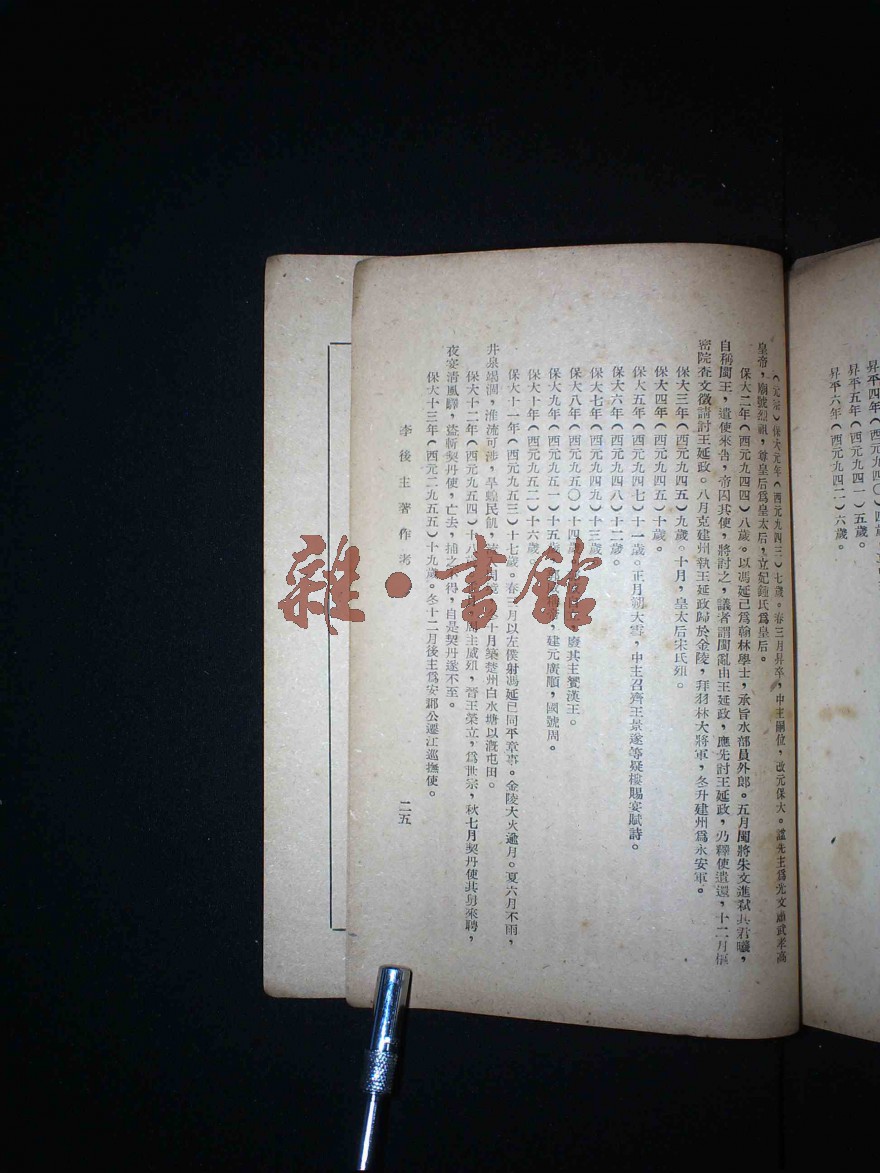 昇平五年(西元九四一)五歲。
昇平六年(西元九四二)六歲。
保大元年(西元九四三)七歲。春三月昇卒,中主嗣位,改元保大。諡先主爲光文肅武孝高
皇帝,廟號烈祖,尊皇后爲皇太后,立妃鍾氏爲皇后。
保大二年(西元九四四)八歲。以馮延已爲翰林學士,承旨水部員外郎。五月閩將朱文進弒其君曦,
自稱閩王,遣使來告,帝囚其使,將討之,議者謂閩亂由王延政,應先討王延政,乃釋使遣還,十二月樞
密院查文徵請討王延政。八月克建州執王延政歸於金陵,拜羽林大將軍,冬升建州爲永安軍。
保大三年(西元九四五)九歲。十月,皇太后宋氏殂。
保大四年(西元九四五)十歲。
保大五年(西元九四七)十一歲。正月朔大雪,中主召齊王景遂等疑樓賜宴賦詩。
保大六年(西元九四八)十二歲。
保大七年(西元九四九)十三歲。
保大八年(西元九五〇)十四歲 廢其主饗漢王。
保大九年(西元九五一)十五歲 建元廣順,國號周。
保大十年(西元九五二)十六歲。
保大十一年(西元九五三)十七歲。春三月以左僕射馮延已同平章事。金陵大火逾月。夏六月不雨,
井泉竭涸,淮流可涉,旱蝗民飢, 冬十月築楚州白水塘以漑屯田。
保大十二年(西元九五四)十八 周主威殂,晉王榮立,爲世宗,秋七月契丹使其舅來聘,
夜宴清風驛,盜斬契丹使,亡去,捕之不得,自是契丹遂不至。
保大十三年(西元二九五五)十九歲。冬十二月後主爲安郡公遷江巡撫使。
李後主著作考
二五
雜·書館